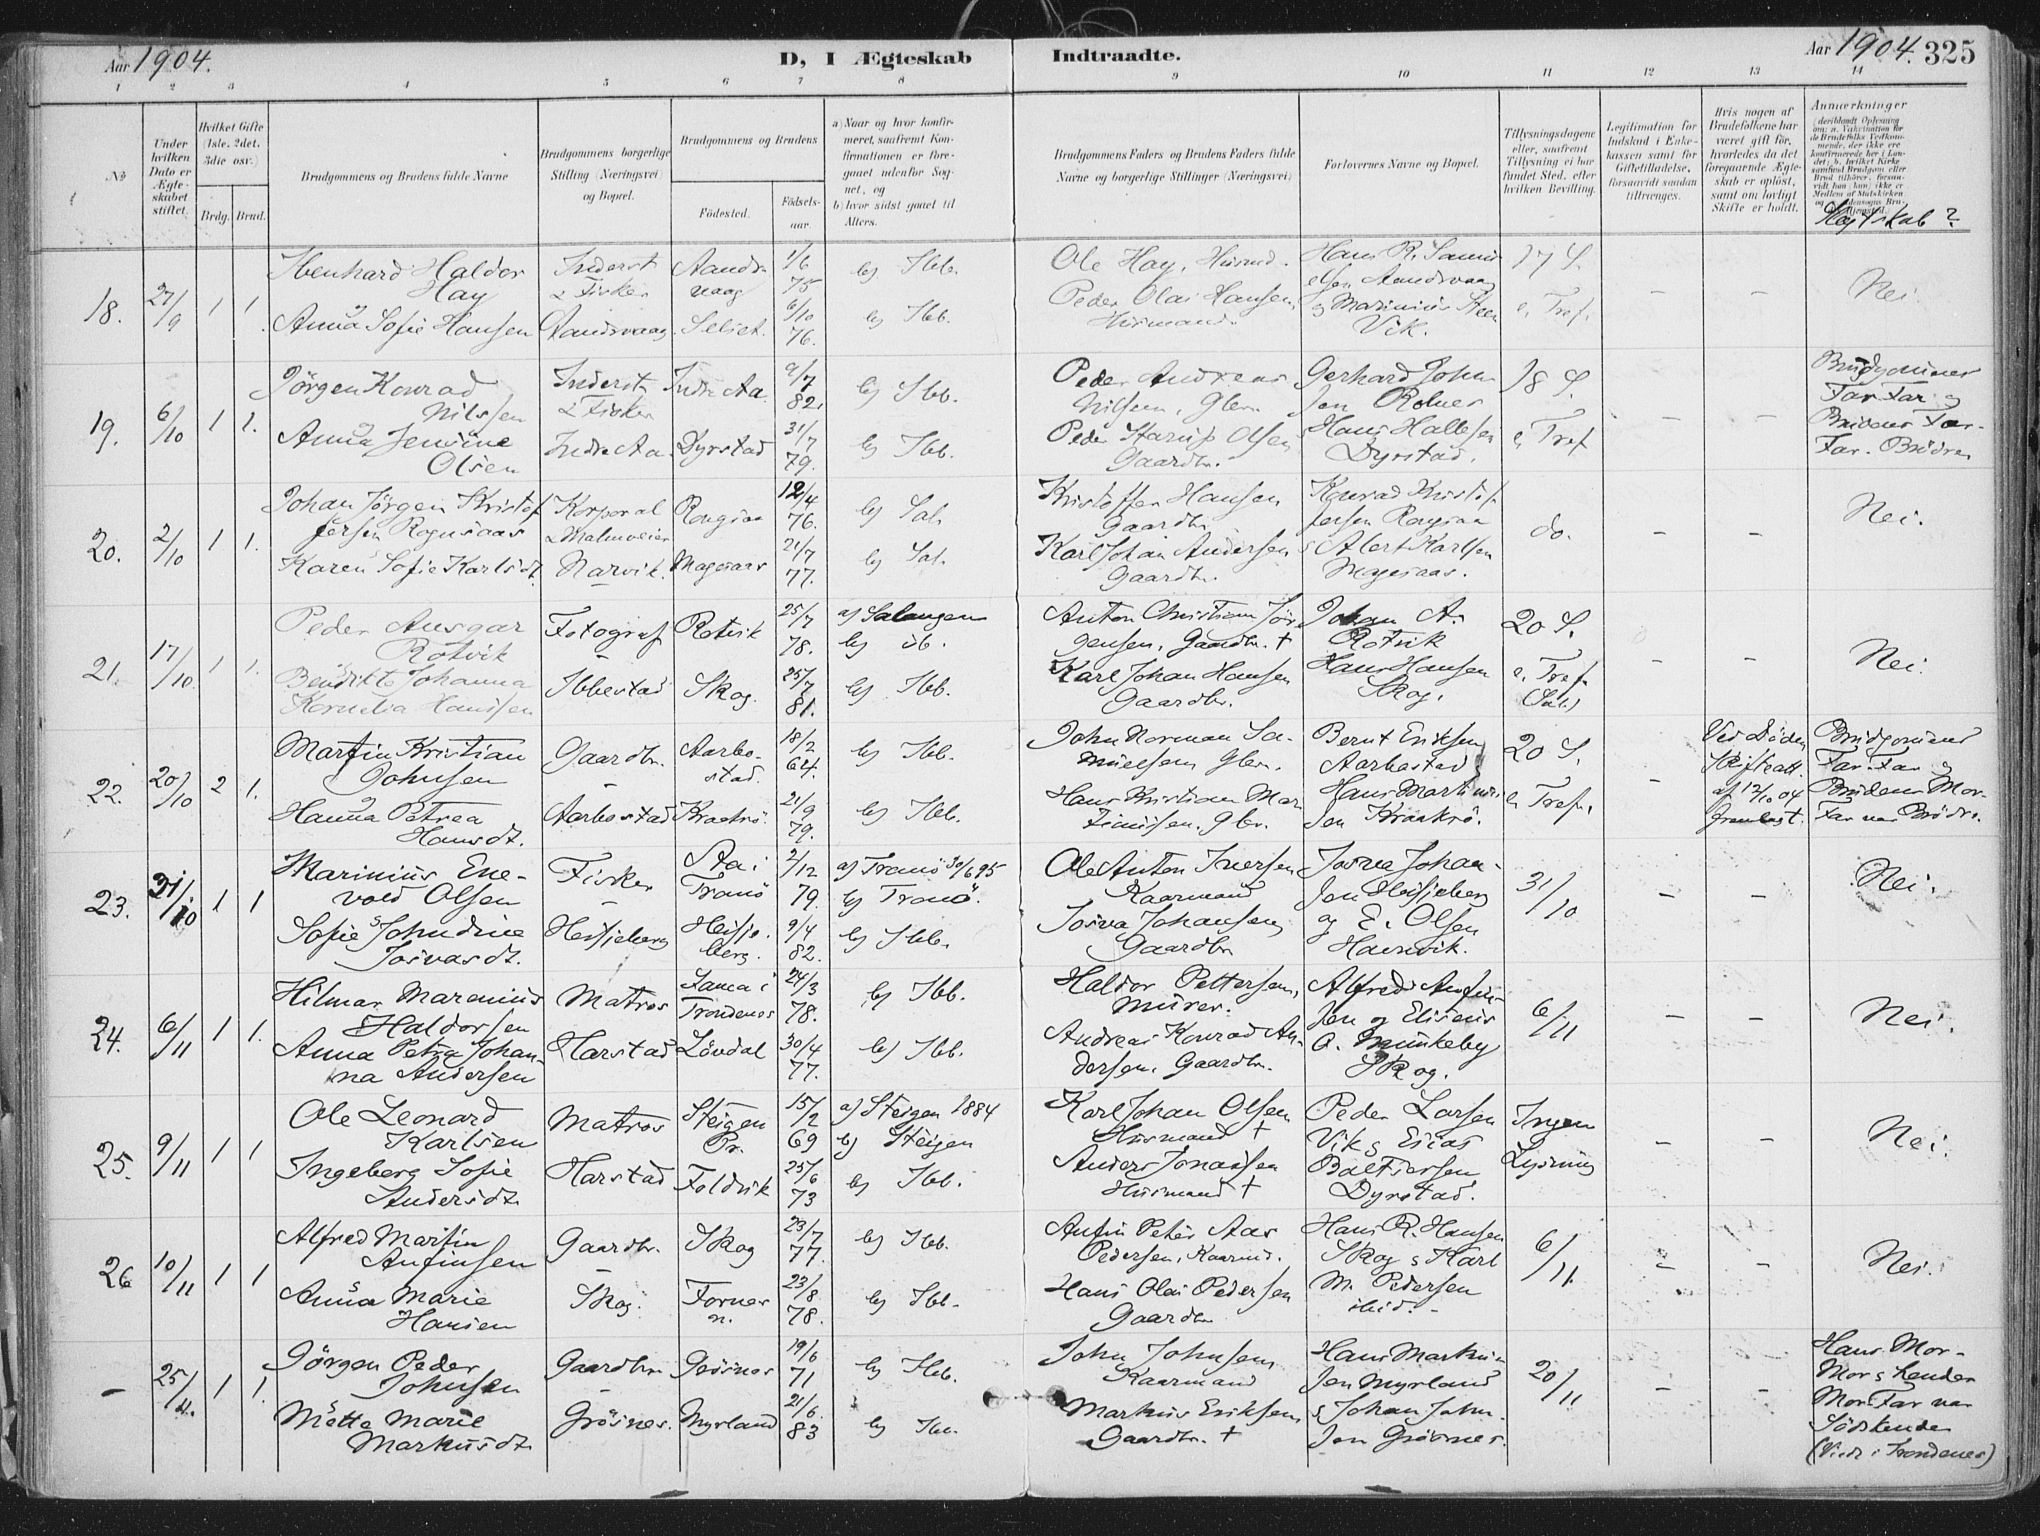 Aar 1904.
D, I Ægteskab Indtraadte.
Aar 1904. 325
1 2 3 4 5 6 7 8 9 10 11 12 13 14
No
Under hvilken Dato er Ægteskabet stiftet.
Hvilket Gifte (1ste. 2det. 3die osv.)
Brdg. Brud.
Brudgommens og Brudens fulde Navne
Brudgommens borgerlige Stilling (Næringsvei) og Bopæl.
Brudgommens og Brudens
Fødested. Fødselsaar.
a) Naar og hvor konfirmeret, saafremt Konfirmationen er foregaaet udenfor Sognet, og
b) hvor sidst gaaet til Alters.
Brudgommens Faders og Brudens Faders fulde Navne og borgerlige Stillinger (Næringsvei)
Forlovernes Navne og Bopæl.
Tillysningsdagene eller, saafremt Tillysning ei har fundet Sted, efter hvilken Bevilling.
Legitimation for Indskud i Enkekassen samt for Giftetilladelse, forsaavidt saadan tiltrænges.
Hvis nogen af Brudefolkene har været gift før, hvorledes da det foregaaende Ægteskab er opløst, samt om lovligt Skifte er holdt.
Anmærkninger
Slegtskab?
18. 27/9 1 1.
Haldor Hay
Inderst & Fisker
Aandsvaag
1/6 75
b) Ibb.
Ole Hay, Husmd.
Hans R. Samuelsen Aandsvaag
17 S.
Nei
Anna Sofie Hansen
Aandsvaag
6/10 76.
b) Ibb.
Peder Olai Hansen, Husmand.
Vik.
e. Tref.
19. 6/10 1 1.
Jörgen Konrad Nilssen
Inderst & Fisker
Indre Aa.
9/7 82.
b) Ibb.
Peder Andreas Nilsen, Gbr.
Gerhard Johnsen
18 S.
Brudgommens Far Far og Brudens Far-Far. Brödre
Anna Jensine Olsen
Indre Aa
Dyrstad
31/7 79.
b) Ibb.
Peder Olsen Gaardbr.
Hans Dyrstad.
e. Tref
20. 2/10 1 1.
Johan Jörgen Kristoffersen
Korporal
12/4 76.
b) Sal.
Kristoffer Hansen Gaardbr.
Konrad Kristoffersen
do.
Nei.
Karen Sofie Karlsdt.
Narvik.
21/7 77.
b) Sal.
Karl Johan Andersen Gaardbr.
Karlsen
21. 17/10 1 1.
Peder Ansgar Rotvik
Fotograf
Rotvik
25/7 78.
a) Salangen
b) ib.
Anton Christian Jörgensen, Gaardbr. †
Johan A. Rotvik
20 S.
Nei.
Johanna Kornelia Hansen
Ibbestad
Skog.
25/7 81.
b) Ibb.
Karl Johan Hansen Gaardbr.
Hans Hansen Skog.
e. Tref. (Sal.)
22. 20/10 2 1.
Martin Kristian Johnsen
Gaardbr.
Aarbostad.
18/2 64.
b) Ibb.
John Norman Samuelsen Gbr.
Bernt Eriksen Aarbostad
20 S.
Ved Döden Skifteatt. af 12/10 04
Brudgommens Far. Far og Brudens Mor-Far var Brödre.
Hanna Petrea Hansdt.
Aarbostad
21/9 79.
b) Ibb.
Hans Kristian Gbr.
Hans
e. Tref.
23. 31/10 1 1
Marinius Enevold Olsen
Fisker
Tranö
2/12 79.
a) Tranö 30/6 95
b) Tranö.
Ole Anton Iversen Kaarmand
Josva Johansen
31/10
Nei.
Sofie Johndine Josvasdt.
9/4 82.
b) Ibb.
Josva Johansen Gaardbr
og E. Olsen Havnvik.
24. 6/11 1 1.
Hilmar Marenius Haldorsen
Matros
Trondenes
24/3 78.
b) Ibb.
Haldor Pettersen, Murer.
6/11
Nei.
Anna Petra Johanna Andersen
Harstad
Lövdal
30/4 77.
b) Ibb.
Andreas Konrad Andersen, Gaardbr.
Skog.
25. 9/11 1 1
Ole Leonard Karlsen
Matros
Steigen Pr.
15/2 69
a) Steigen 1884
b) Steigen
Karl Johan Olsen Husmand †
Peder Larsen Vik
Ingen Lysning
Nei.
Ingeberg Sofie Andersdt.
Harstad
Foldvik
25/6 73
b) Ibb.
Anders Jonassen Husmand †
Dyrstad.
26 10/11 1 1
Alfred Martin Anfinsen
Gaardbr.
Skog
23/7 77.
b) Ibb.
Anfin Peter Aas Pedersen, Kaarmd.
Hans R. Hansen Skog & Karl
6/11.
Nei.
Anna Marie Hansen
Skog.
Fornes n.
23/8 78.
b) Ibb.
Hans Olai Pedersen Gaardbr
M. Pedersen ibid.
— 25/11. 1 1.
Jörgen Peder Johnsen
Gaardbr.
Grösnes
19/6 71
b) Ibb.
John Johnsen, Kaarmand
Hans Markussen Myrland
20/11
Hans Mor-Mor & hendes Mor Far var Södskende
(Viede i Trondenes)
Mötte Marie Markusdt.
Grösnes.
Myrland
21/6 83
b) Ibb.
Markus Eriksen, Gaardbr. †
& Johan Johnsen Grösnes.